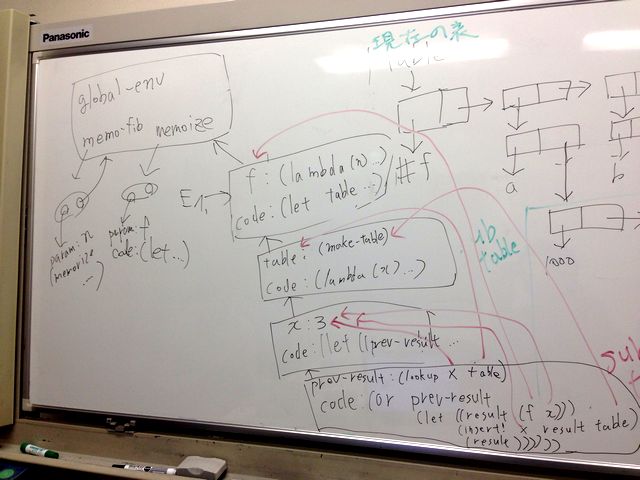 Panasonic
現在の表
table
global-env
memo-fib memoize
f : (lambda (n) ...)
code: (let table ...)
E1
#f
a
b
param: n
(memorize
...)
param: f
code: (let...)
table: (make-table)
code: (lambda (x) ...)
table
1000
x : 3
code: (let ((prev-result ...
sub
prev-result: (lookup x table)
code: (or prev-result
(let ((result (f x)))
(insert! x result table)
(resule))))))